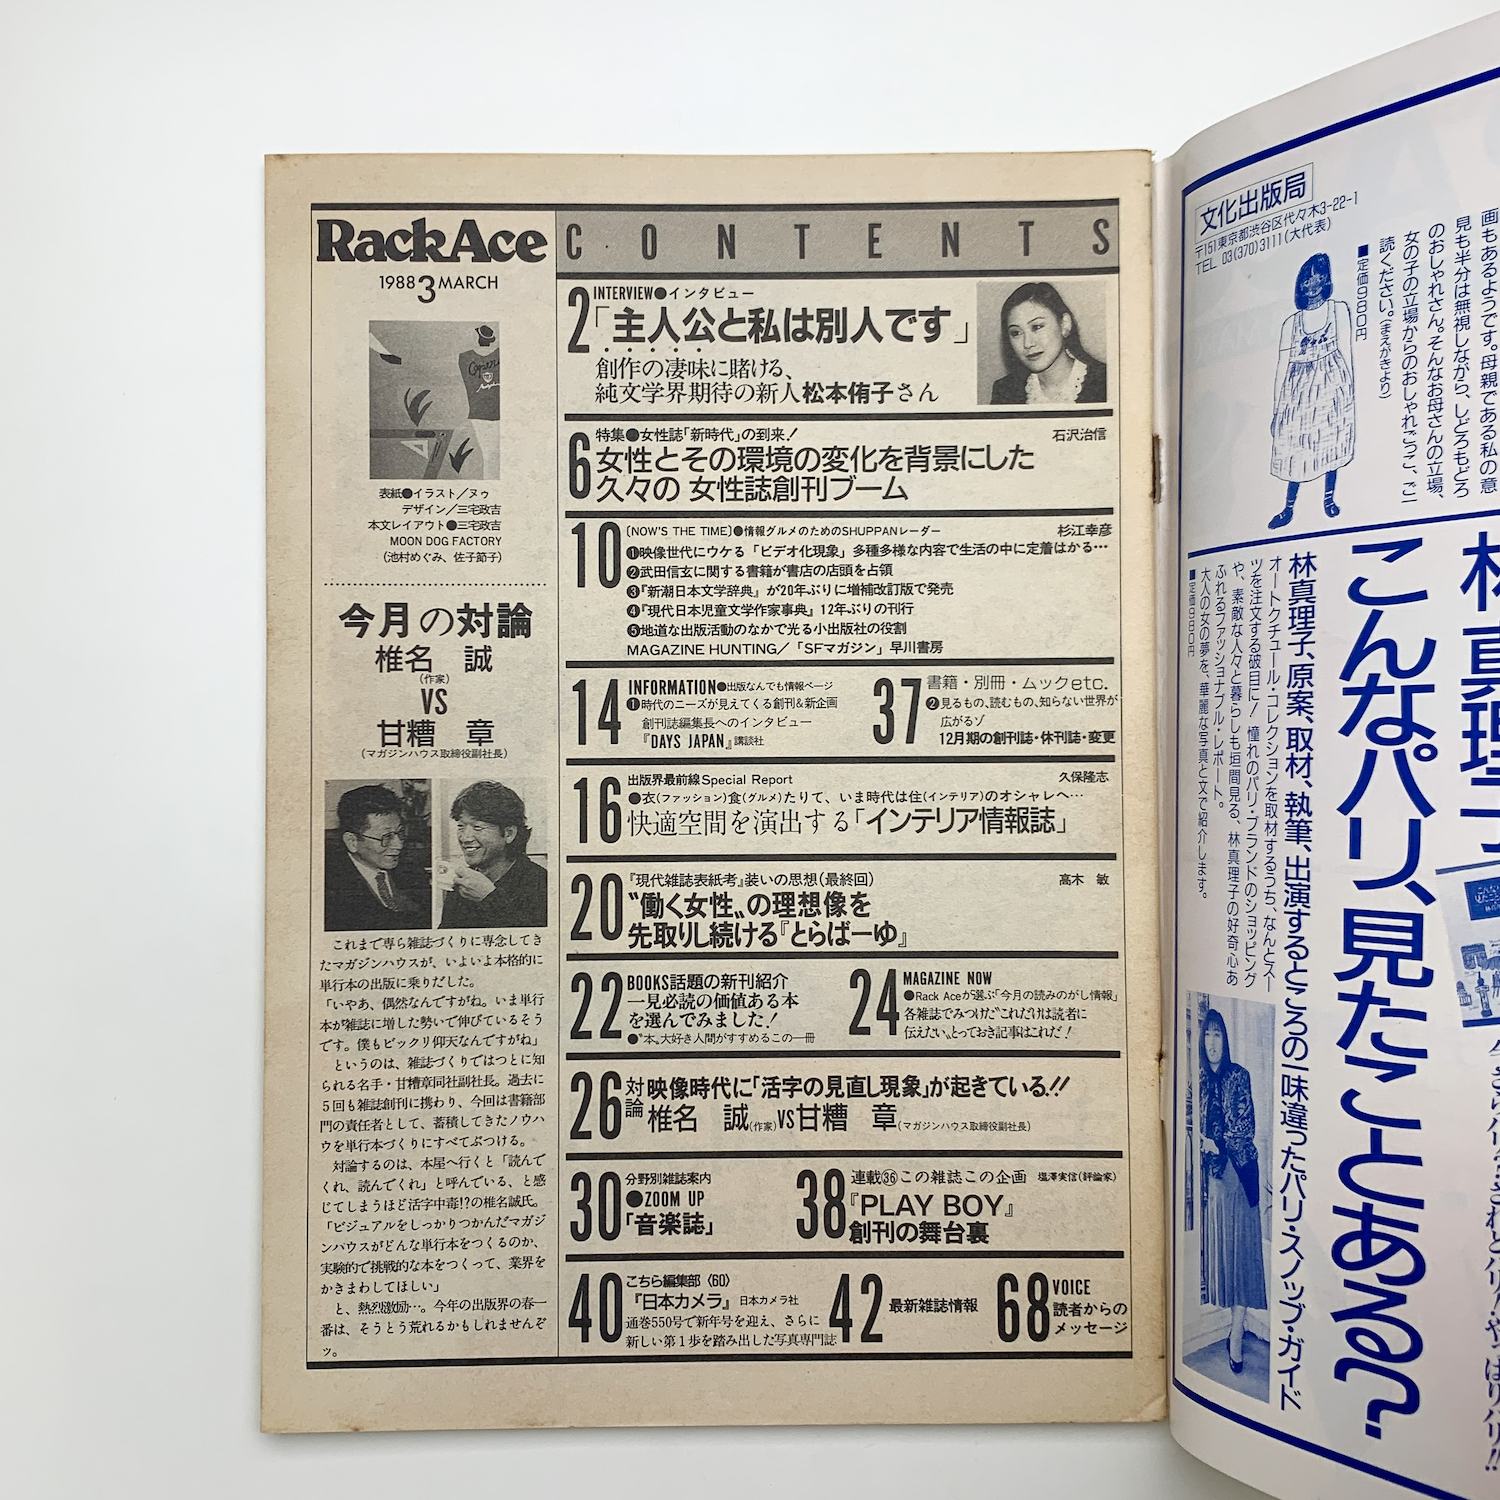 RackAce
1988 3 MARCH
表紙●イラスト／ヌゥ
デザイン／三宅政吉
本文レイアウト●三宅政吉
MOON DOG FACTORY
（池村めぐみ、佐子節子）
今月の対論
椎名　誠
（作家）
VS
甘糟　章
（マガジンハウス取締役副社長）
これまで専ら雑誌づくりに専念してき
たマガジンハウスが、いよいよ本格的に
単行本の出版に乗りだした。
「いやあ、偶然なんですがね。いま単行
本が雑誌に増した勢いで伸びているそう
です。僕もビックリ仰天なんですがね」
というのは、雑誌づくりではつとに知
られる名手・甘糟章同社副社長。過去に
5回も雑誌創刊に携わり、今回は書籍部
門の責任者として、蓄積してきたノウハ
ウを単行本づくりにすべてぶつける。
対論するのは、本屋へ行くと「読んで
くれ、読んでくれ」と呼んでいる、と感
じてしまうほど活字中毒!?の椎名誠氏。
「ビジュアルをしっかりつかんだマガジ
ンハウスがどんな単行本をつくるのか、
実験的で挑戦的な本をつくって、業界を
かきまわしてほしい」
と、熱烈激励…。今年の出版界の春一
番は、そうとう荒れるかもしれませんぞ
ッ。
CONTENTS
2 INTERVIEW●インタビュー
「主人公と私は別人です」
創作の凄味に賭ける、
純文学界期待の新人松本侑子さん
6 特集●女性誌「新時代」の到来！ 石沢治信
女性とその環境の変化を背景にした
久々の 女性誌創刊ブーム
10 〔NOW'S THE TIME〕●情報グルメのためのSHUPPANレーダー 杉江幸彦
❶映像世代にウケる「ビデオ化現象」多種多様な内容で生活の中に定着はかる…
❷武田信玄に関する書籍が書店の店頭を占領
❸『新潮日本文学辞典』が20年ぶりに増補改訂版で発売
❹『現代日本児童文学作家事典』12年ぶりの刊行
❺地道な出版活動のなかで光る小出版社の役割
MAGAZINE HUNTING／「SFマガジン」早川書房
14 INFORMATION●出版なんでも情報ページ
❶時代のニーズが見えてくる創刊&新企画
創刊誌編集長へのインタビュー
『DAYS JAPAN』講談社
37 書籍・別冊・ムックetc.
❷見るもの、読むもの、知らない世界が
広がるゾ
12月期の創刊誌・休刊誌・変更
16 出版界最前線Special Report 久保隆志
●衣(ファッション)食(グルメ)たりて、いま時代は住(インテリア)のオシャレへ…
快適空間を演出する「インテリア情報誌」
20 『現代雑誌表紙考』装いの思想(最終回) 高木　敏
〝働く女性〟の理想像を
先取りし続ける『とらばーゆ』
22 BOOKS話題の新刊紹介
一見必読の価値ある本
を選んでみました！
●〝本〟大好き人間がすすめるこの一冊
24 MAGAZINE NOW
●Rack Aceが選ぶ「今月の読みのがし情報」
各雑誌でみつけた〝これだけは読者に
伝えたい〟とっておき記事はこれだ！
26 対論 映像時代に「活字の見直し現象」が起きている!!
椎名　誠(作家)VS甘糟　章(マガジンハウス取締役副社長)
30 分野別雑誌案内
●ZOOM UP
「音楽誌」
38 連載㊱この雑誌この企画 塩澤実信(評論家)
『PLAY BOY』
創刊の舞台裏
40 こちら編集部〈60〉
『日本カメラ』 日本カメラ社
通巻550号で新年号を迎え、さらに
新しい第1歩を踏み出した写真専門誌
42 最新雑誌情報
68 VOICE
読者からの
メッセージ
文化出版局
〒151東京都渋谷区代々木3-22-1
TEL 03(370)3111(大代表)
画もあるようです。母親である私の意
見も半分は無視しながら、しどろもどろ
のおしゃれさん。そんなお母さんの立場、
女の子の立場からのおしゃれごっこ、ご一
読ください。(まえがきより)
■定価980円
こんなパリ、見たことある?
林真理子、原案、取材、執筆、出演するところの一味違ったパリ・スノッブ・ガイド
オートクチュール・コレクションを取材するうち、なんとスー
ツを注文する破目に！ 憧れのパリ・ブランドのショッピング
や、素敵な人々と暮らしも垣間見る、林真理子の好奇心あ
ふれるファッショナブル・レポート。
大人の女の夢を、華麗な写真と文で紹介します。
■定価980円